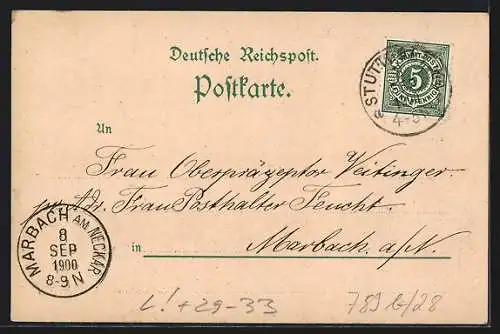 Deutsche Reichspost.
Postkarte.
STUTTG
5
4-5
An
Frau Oberpräzeptor Veitinger
pr. Adr. Frau Posthalter Feucht.
in Marbach a/N.
MARBACH AM NECKAR
8
SEP
1900
8-9N
L! + 29-33
789 b/28